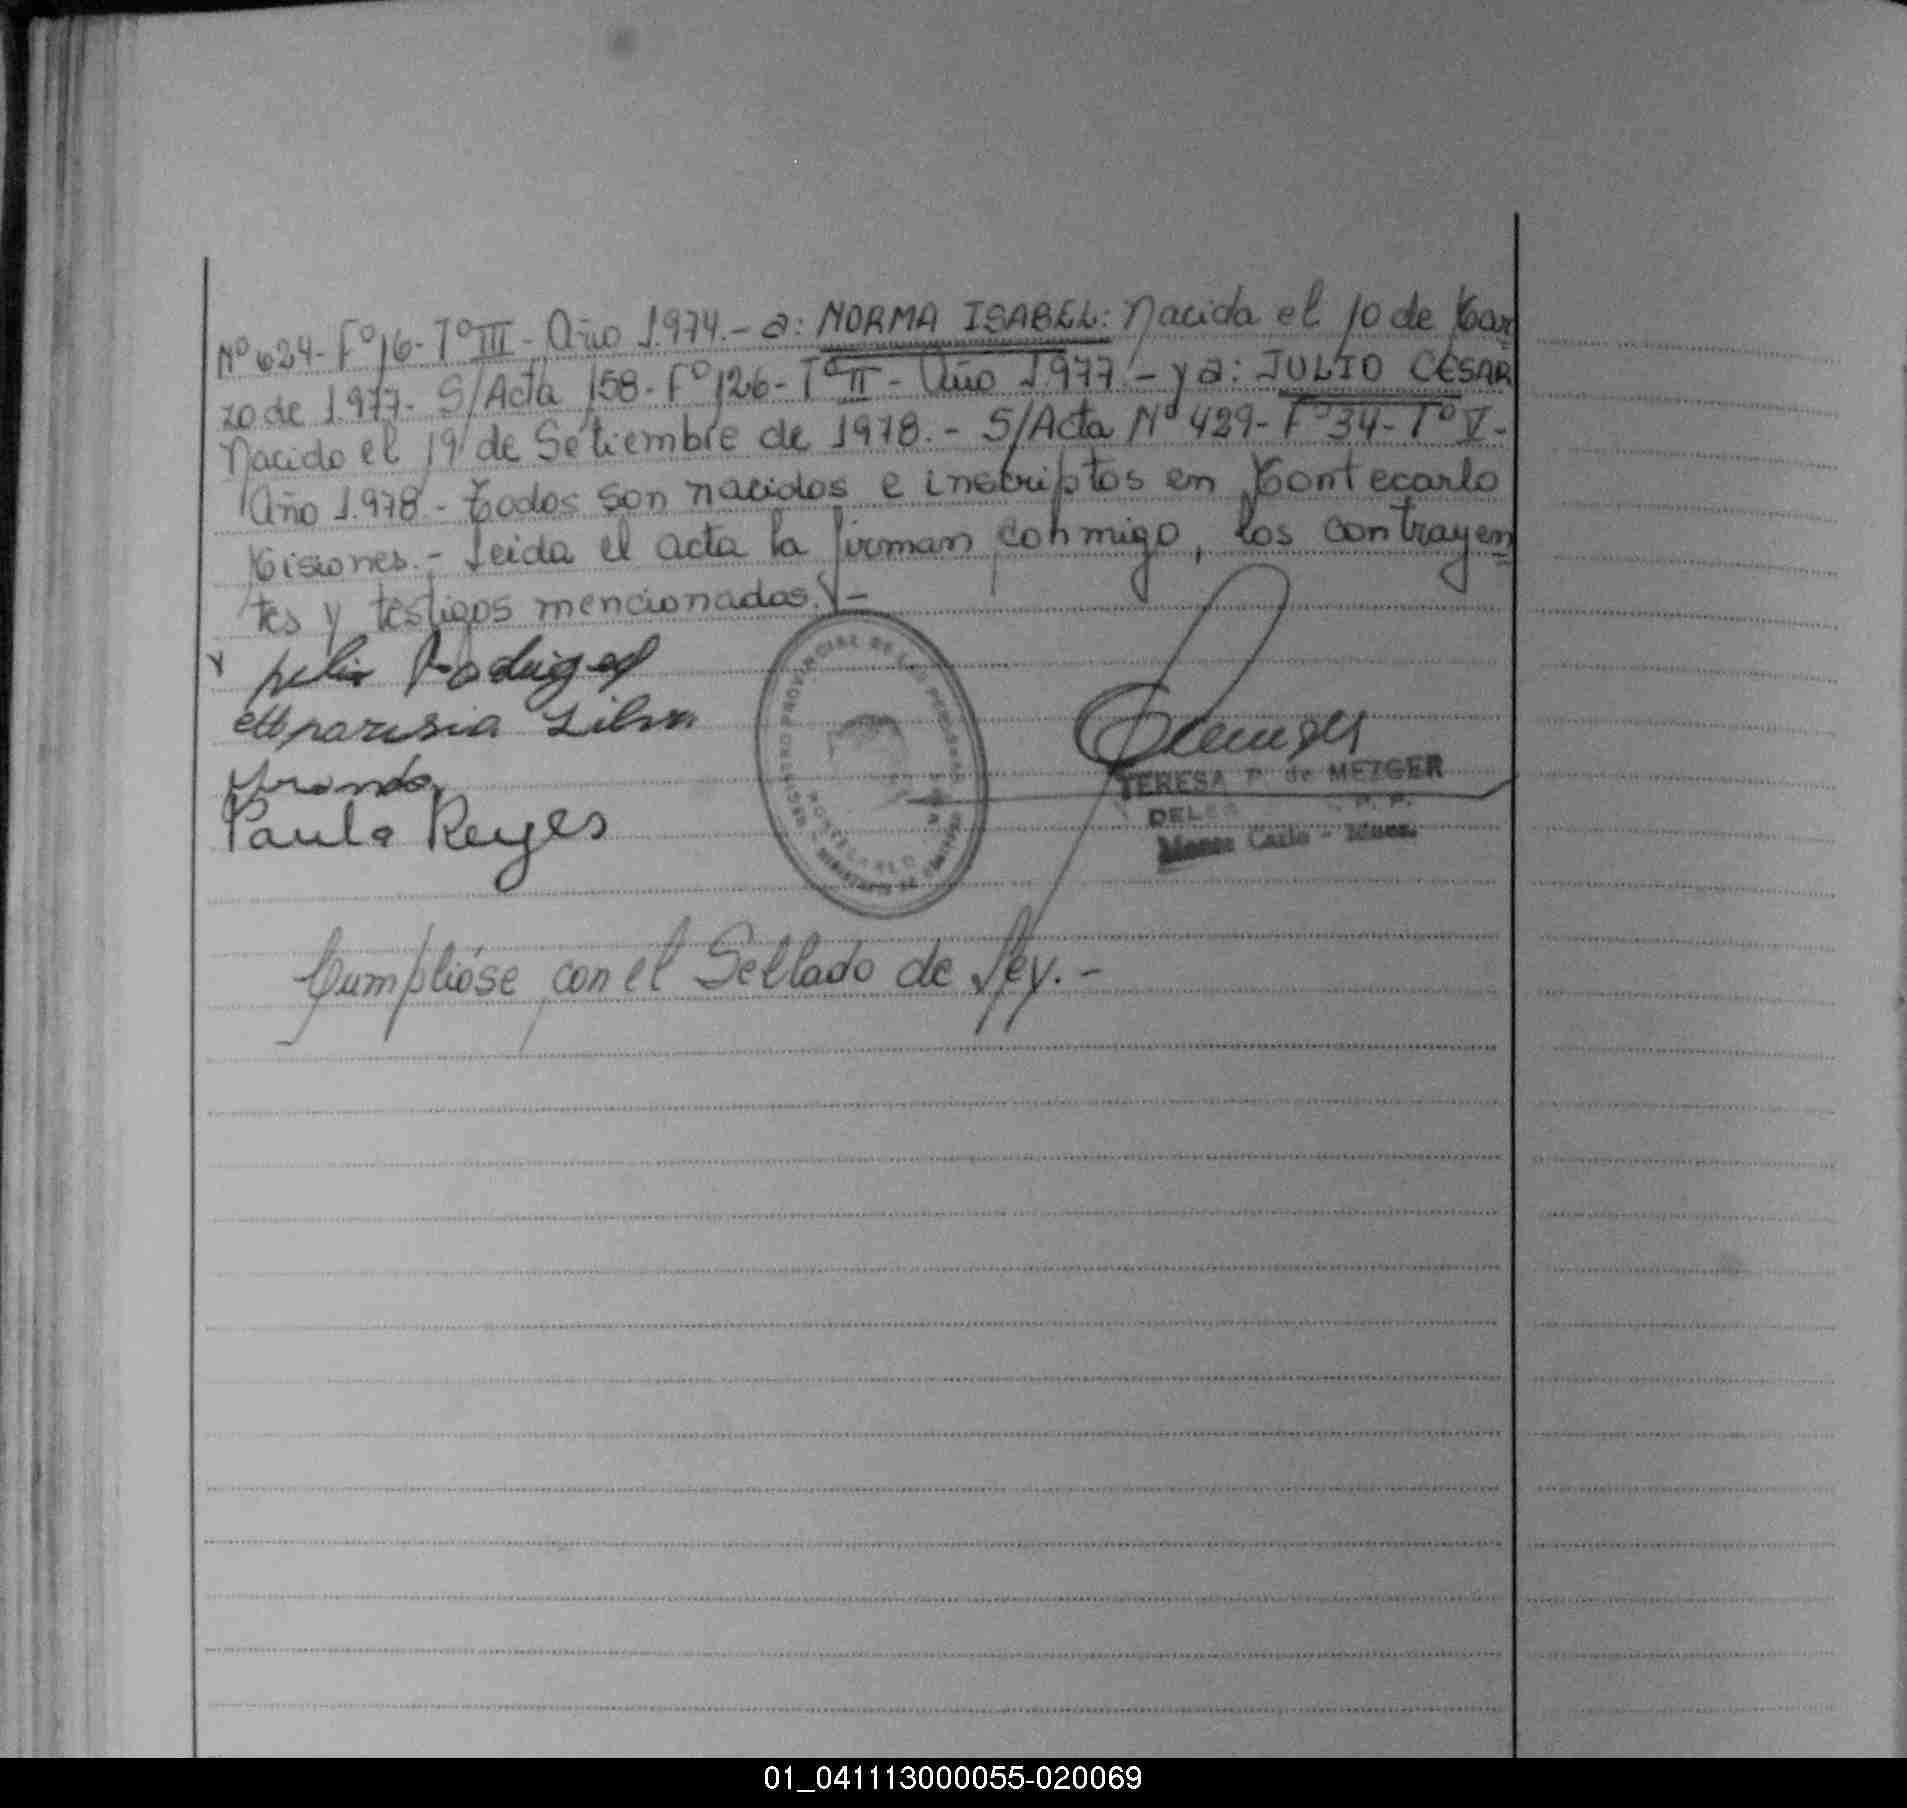 Nº 624- Fº 16- Tº III - Año 1.974.- a: NORMA ISABEL: Nacida el 10 de Mar
zo de 1.977- S/Acta 158- Fº 126- Tº II - Año 1.977.- y a: JULIO CESAR
Nacido el 19 de Setiembre de 1978.- S/Acta Nº 429- Fº 34- Tº V-
Año 1.978.- Todos son nacidos e inscriptos en Montecarlo
Misiones.- Leida el acta la firman conmigo, los contrayen
tes y testigos mencionados.-
felix Rodrigez
Aparisia Silva
Paula Reyes
REGISTRO PROVINCIAL DE LAS PERSONAS
MINISTERIO DE GOBIERNO
MONTECARLO
TERESA P. de METZGER
Monte Carlo - Mnes.
Cumplióse con el Sellado de Ley.-
01_041113000055-020069